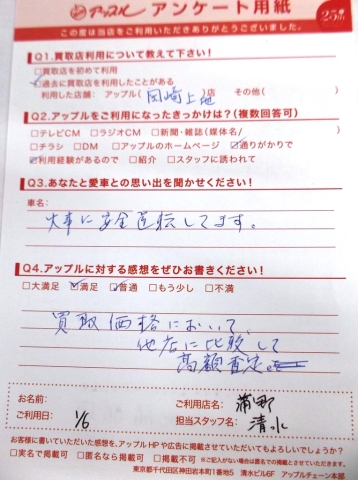 アップル アンケート用紙 25th
この度は当店をご利用いただきありがとうございました。
Q1.買取店利用について教えて下さい!
□買取店を初めて利用
☑過去に買取店を利用したことがある
利用した店舗: アップル(岡崎上地)店 その他( )
Q2.アップルをご利用になったきっかけは?(複数回答可)
□テレビCM □ラジオCM □新聞・雑誌(媒体名/ )
□チラシ □DM □アップルのホームページ ☑通りがかりで
☑利用経験があるので □紹介 □スタッフに誘われて
Q3.あなたと愛車との思い出を聞かせください!
車名:
大事に安全運転してます。
Q4.アップルに対する感想をぜひお書きください!
□大満足 ☑満足 ☑普通 □もう少し □不満
買取価格において、
他店に比較して
高額査定。
お名前: ご利用店名: 蒲郡
ご利用日: 1/6 担当スタッフ名: 清水
お客様に書いていただいた感想を、アップルHPや広告に掲載させていただいてもよろしいでしょうか?
□実名で掲載可 □匿名なら掲載可 □掲載不可 ※ご記入がない場合は匿名での掲載とさせていただきます。
東京都千代田区神田岩本町1番地5 清水ビル6F アップルチェーン本部